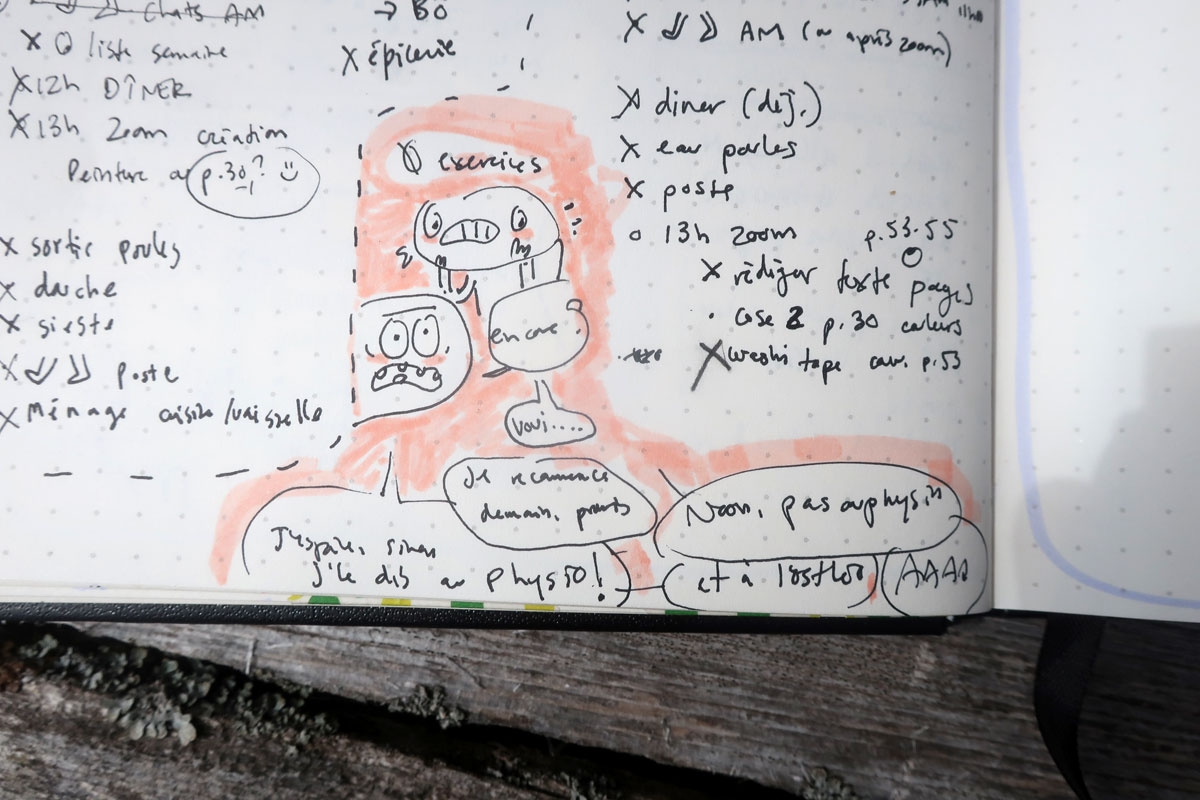 chats AM
X O liste semaine
X 12h DÎNER
X 13h Zoom création
Peinture p.30? :)
X sortie poules
X douche
X sieste
X poste
X Ménage cuisine/vaisselle
→ BO
X épicerie
exercices
encore ?
voui....
Je recommence
demain, promis
J'espère, sinon
j'le dis au physio!
Noon, pas au physio
et à l'ostéo
AAAA
X AM (ou après zoom)
X dîner (déj.)
X eau poules
X poste
o 13h zoom p.53-55
X rédiger texte pages
• case 2 p.30 couleurs
X washi tape couv. p.53